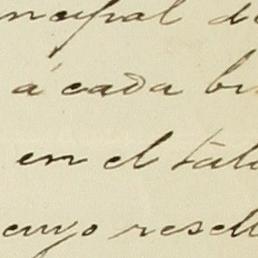 ncipal d
á cada bi
en el tal
cuyo resell